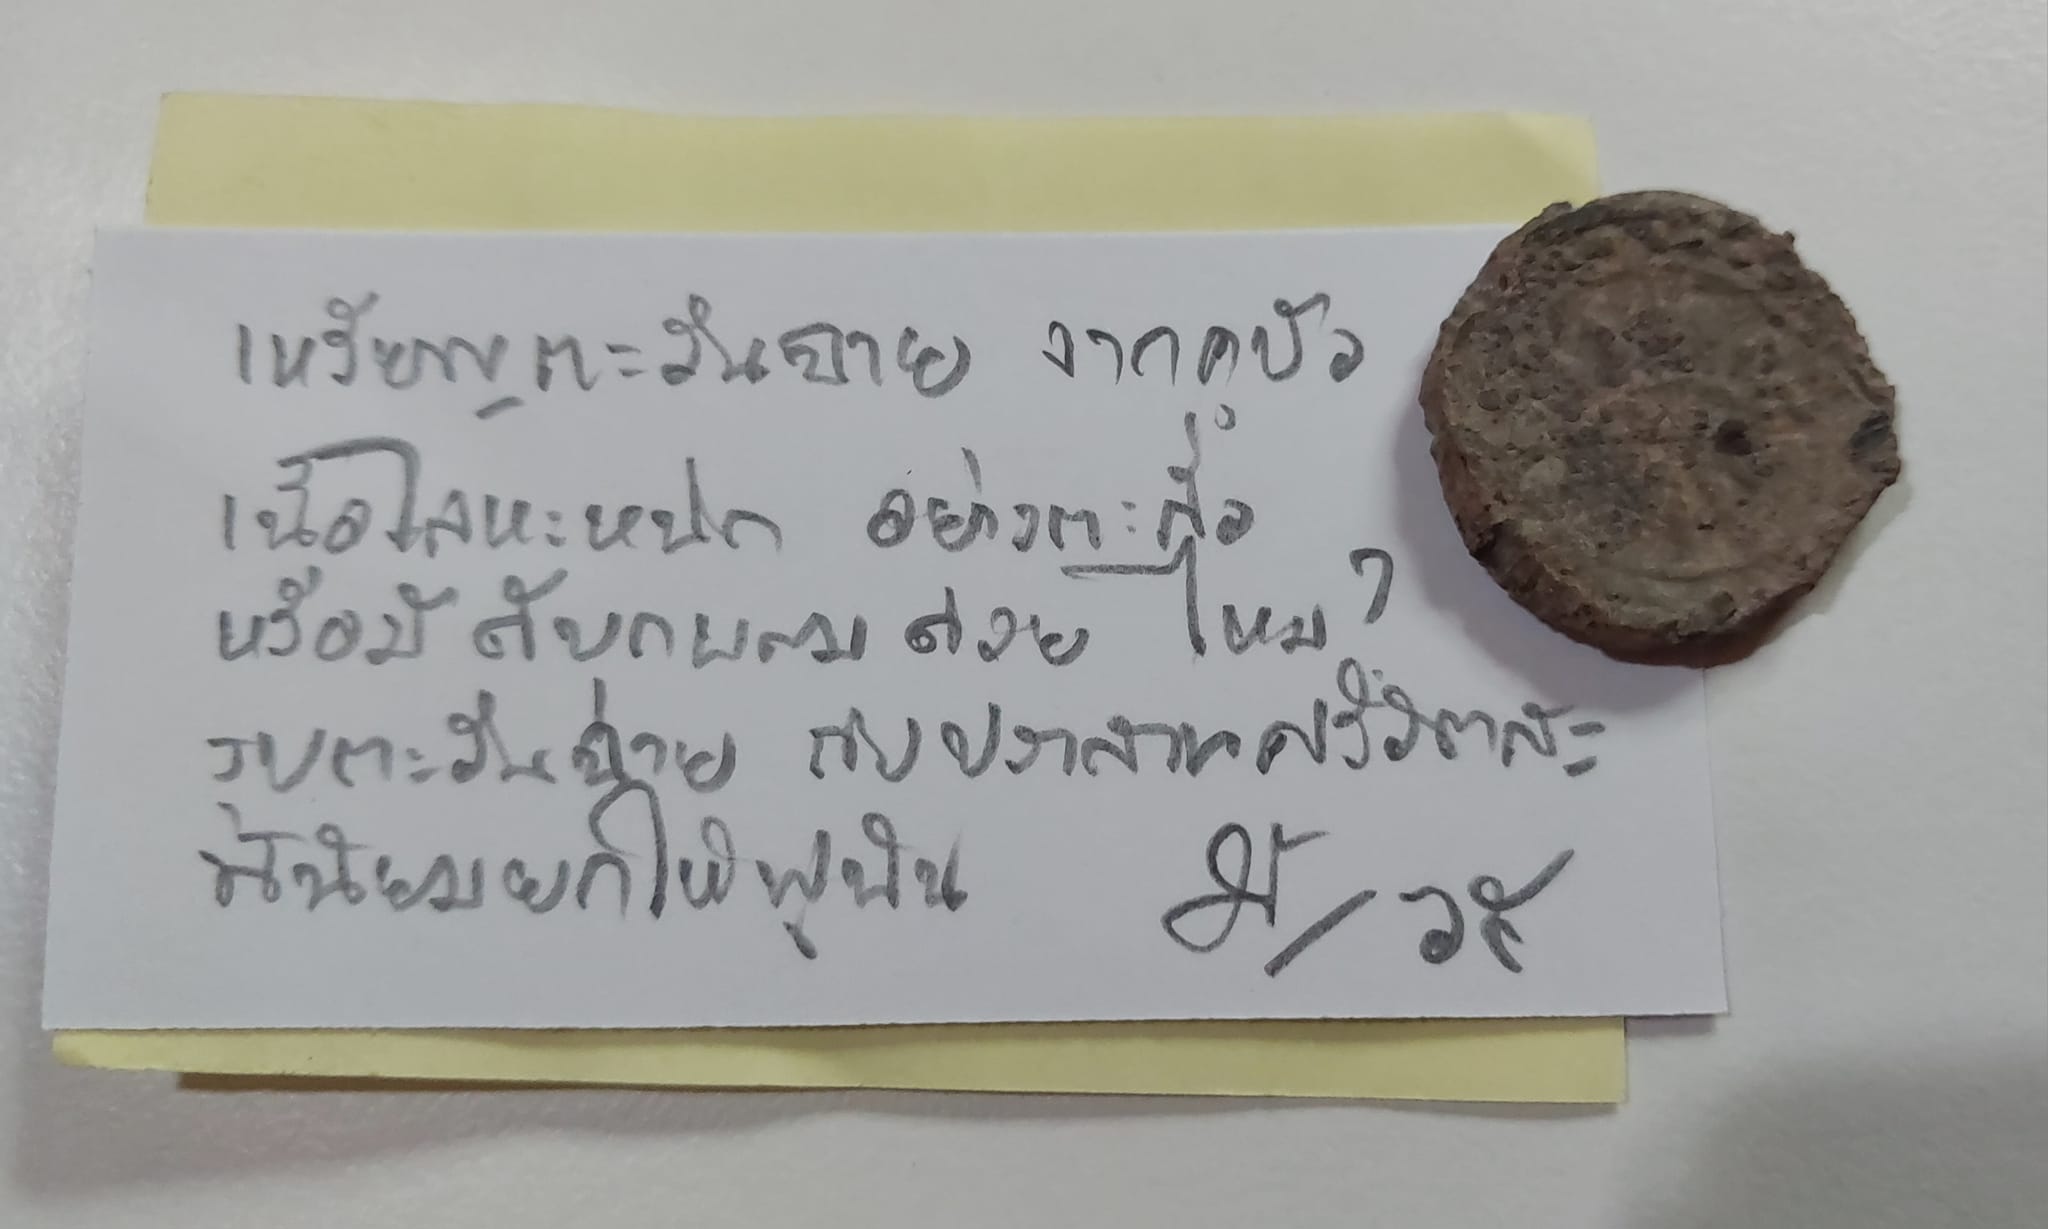 เหรียญตะวันฉาย จากคูบัว
เนื้อโลหะหนัก อย่างตะกั่ว
หรือมีดีบุกผสมด้วย ไหม?
รูปตะวันฉาย กับปราสาทศรีวัตสะ
นี้นิยมยกให้ฟูนัน